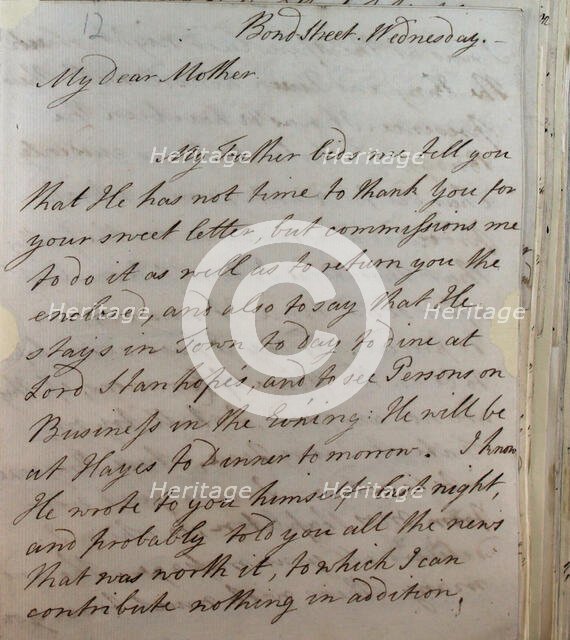 12
Bond Street. Wednesday.—
My dear Mother
My Father bids me tell you
that He has not time to thank you for
your sweet letter, but commissions me
to do it as well as to return you the
enclosed, and also to say that He
stays in Town to day to dine at
Lord Stanhope's, and to see Persons on
Business in the Evening: He will be
at Hayes to Dinner to morrow. I know
He wrote to you himself last night,
and probably told you all the news
that was worth it, to which I can
contribute nothing in addition,
Heritage
Heritage
Heritage
Heritage
Heritage
Heritage
Heritage
Heritage
C